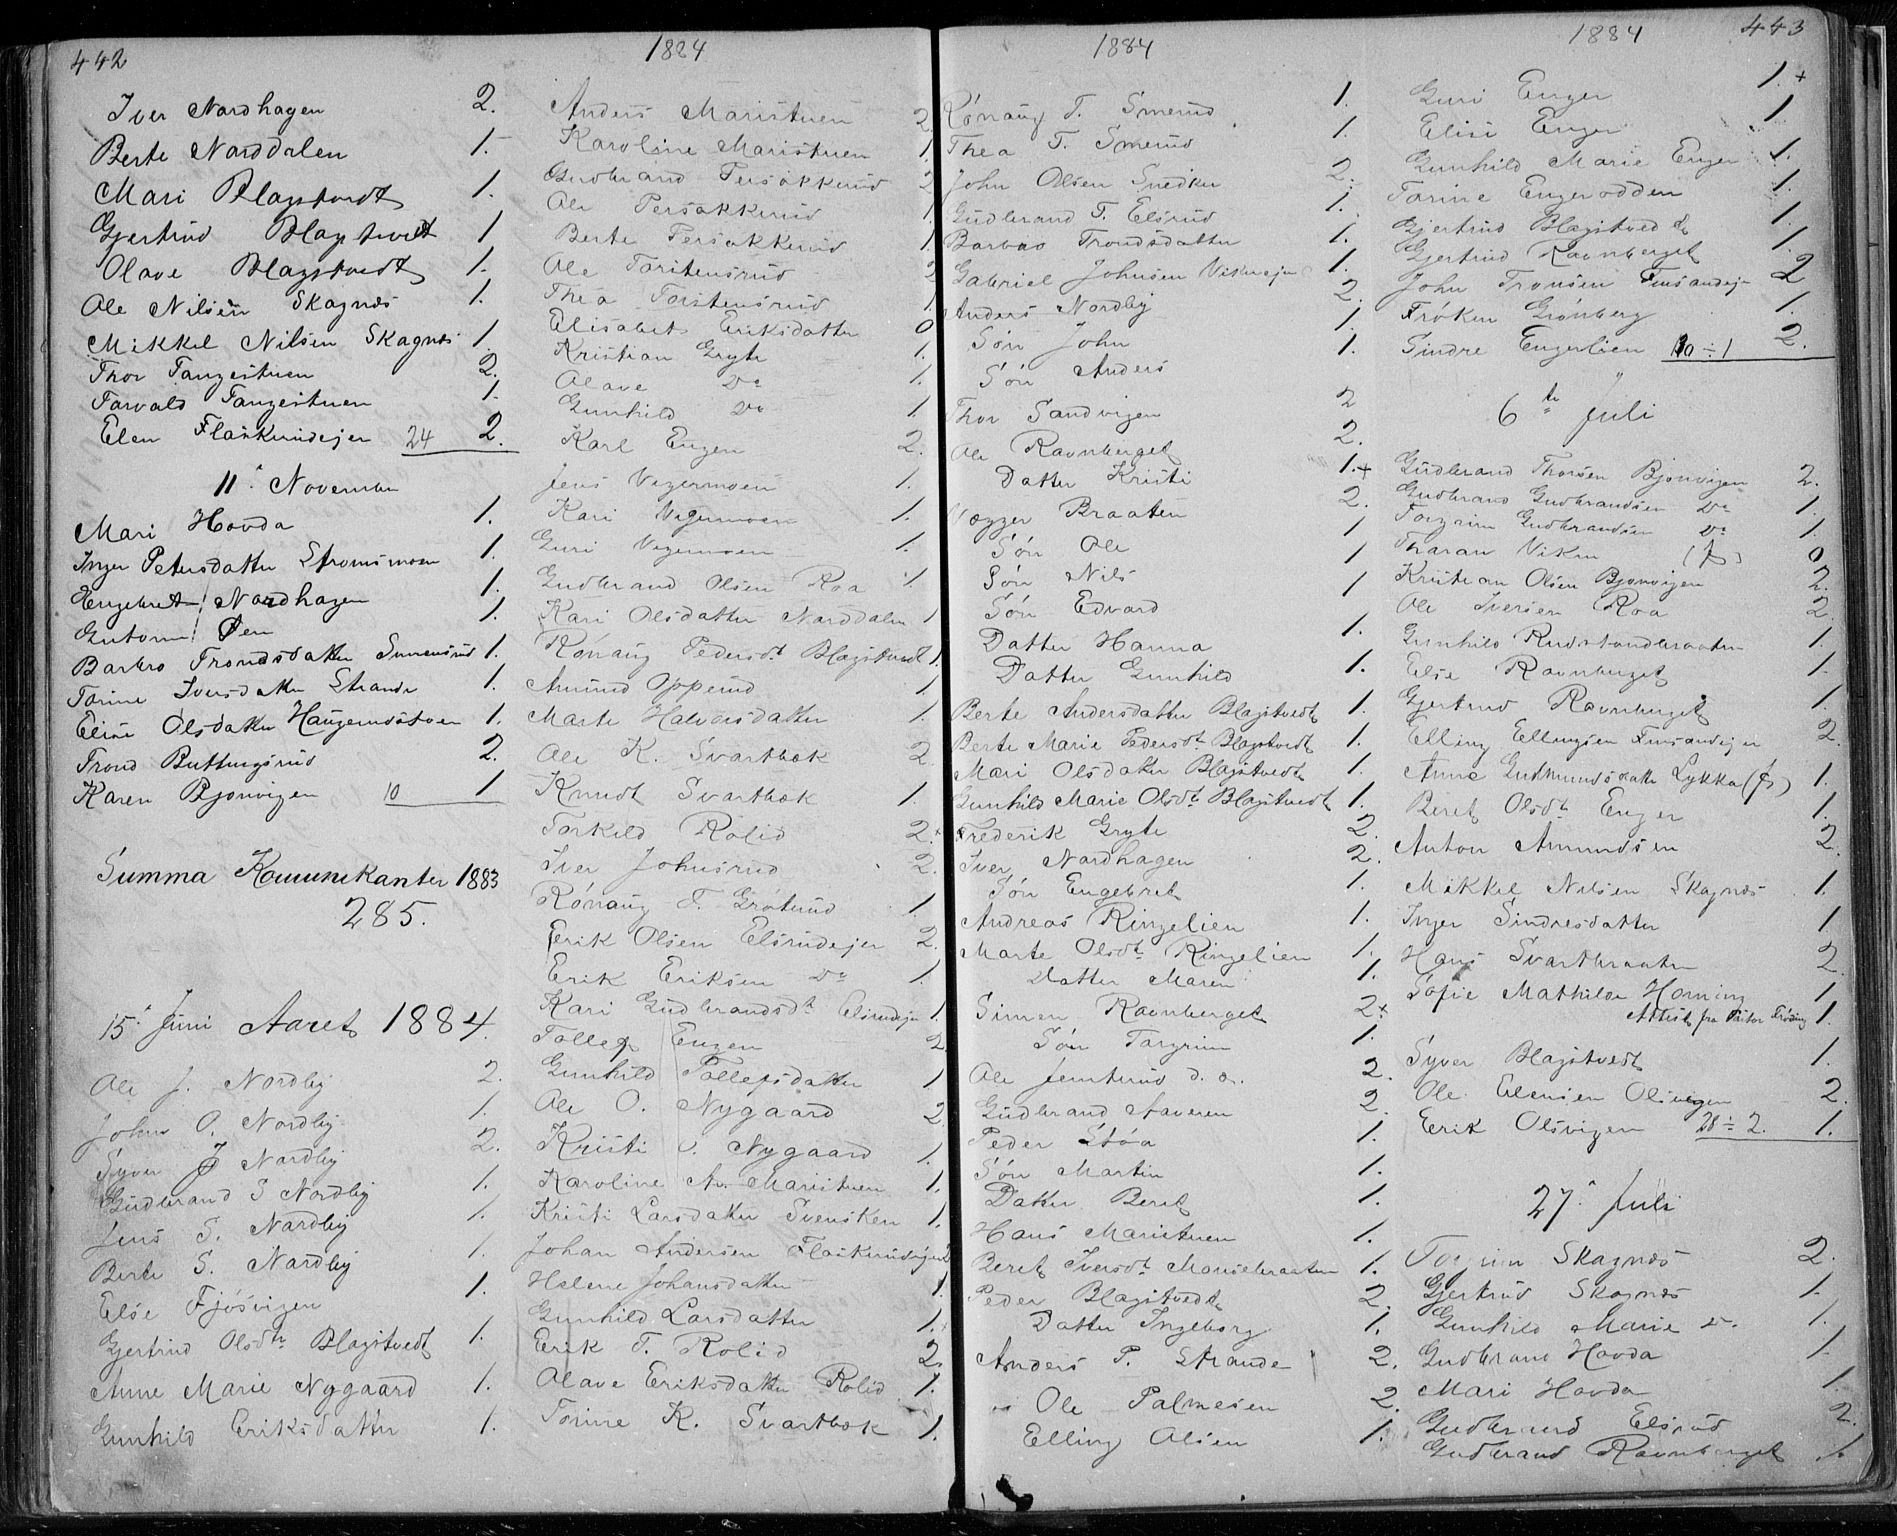 442
1884
Iver Nordhagen 2.
Berte Norddalen 1.
Mari Blagstvedt 1.
Gjertrud Blagstvedt 1
Olave Blagstvedt 1.
Ole Nilsen Skagnæs 1.
Mikkel Nilsen Skagnæs 1.
Thor Tangestuen 2.
Torvald Tangestuen 1.
Elen Flaskerudejer 24 2.
11' November
Mari Hovda 1.
Inger Petersdatter Strømsmoen 1.
Engebret Nordhagen 1.
Gutorm Øen 1.
Barbro Trondsdatter 1.
Torine Iversdatter Strande 1.
Elise Olsdatter Haugerudstuen 1.
Trond Buttingsrud 2.
Karen Bjonvigen 10 1
Summa Kommunikanter 1883
285.
15' Juni Aaret 1884.
Ole J. Nordby 2.
John O. Nordby 1.
Syver J Nordby 2.
Gudbrand S Nordby 1.
Jens S. Nordby 1.
Berte S. Nordby 1.
Else Fjøsvigen 1.
Gjertrud Olsdtr Blagstvedt 1.
Anne Marie Nygaard 1.
Gunhild Eriksdatter 1.
Anders Maristuen 2
Karoline Maristuen 1.
Gudbrand Persokkerud 2
Ole Persokkerud 1
Berte Persokkerud 1
Ole Torstensrud 2
Thea Torstensrud 1
Elisabet Eriksdatter 0
Kristian Gryte 1.
Olave Do 1.
Gunhild Do 1
Karl Engen 2.
Jens Vegermoen 1.
Kari Vegermoen 1.
Guri Vegermoen 1.
Gudbrand Olsen Roa 1
Kari Olsdatter Norddalen 1
Rønaug Pedersdt Blagstvedt 1.
Amund Opperud 1
Marte Halvorsdatter 1.
Ole K. Svartbæk 2
Knudt Svartbæk 1.
Torkild Rolid 2+
Iver Johnsrud 2.
Rønaug T. Grøterud 1
Erik Olsen Elsrudejer 2.
Erik Eriksen Do 1.
Kari Gudbrandsdt Elsrudejer 1
Tollef Engen 2
Gunhild Tollefsdatter 1
Ole O. Nygaard 2
Kristi O. Nygaard 1.
Karoline A. Maristuen 1.
Kristi Larsdatter Svensken 1.
Johan Andersen Flaskerudejer 2
Helene Johansdatter 1.
Gunhild Larsdatter 1.+
Erik T. Rolid 2.
Olave Eriksdatter Rolid 1.
Torine K. Svartbæk 1.
1884
1884
443
Rønaug T. Smerud 1.
Thea T. Smerud 1.
John Olsen Snedker 2.
Gudbrand T. Elsrud 1.
Barbro Trondsdatter 1.
Gabriel Johnsen Vikenejer 1.
Anders Nordby 2.
Søn John 1.
Søn Anders 1.
Thor Sandvigen 2
Ole Ravnberget 2.
Datter Kristi 1.+
Vegger Braaten 2.
Søn Ole 1
Søn Nils 1
Søn Edvard 1
Datter Hanna 1.
Datter Gunhild 1.
Berte Andersdatter Blagstvedt 1.
Berte Marie Pedersdt Blagstvedt 1.
Mari Olsdatter Blagstvedt 1.
Gunhild Marie Olsdt Blagstvedt 1.
Frederik Gryte 2.
Iver Nordhagen 2.
Søn Engebret 1.
Andreas Ringelien 1.
Marte Olsdt Ringelien 1.
Datter Maren 1.
Simen Ravnberget 2+
Søn Torgrim 1.
Ole Jemterud d. æ. 2.
Gudbrand Aaveren 2.
Peder Støa 1.
Søn Martin 1.
Datter Beret 1.
Hans Maristuen 1.
Beret Iversdt Monsebraaten 1.
Peder Blagstvedt 2.
Datter Ingeborg 1.
Anders P. Strande 2.
Ole Palmesen 2.
Elling Olsen 1.
Guri Enger 1.+
Elise Enger 1
Gunhild Marie Enger 1.
Torine Engerodden 1.
Gjertrud Blagstvedt 1.
Gjertrud Ravnberget 1.
John Tronsen Finsandejer 2
Frøken Grønberg 1.
Sindre Engerlien 2.
6te Juli
Gudbrand Thorsen Bjonvigen 2.
Gudbrand Gudbrandsen Do 1.
Torgrim Gudbrandsen Do 1.
Tharan Viken (fs) 0
Kristian Olsen Bjonvigen 2.
Ole Iversen Roa 2
Gunhild Rudstandbraaten 1.
Else Ravnberget 1.
Gjertrud Ravnberget 1.
Elling Ellingsen Finsandejer 2.
Anne Gudmundsdatter Lykkja (fs) 1.
Beret Olsdt Enger 1.
Anton Amundsen 2.
Mikkel Nilsen Skagnæs 1.
Inger Sindresdatter 1
Hans Svartbraaten 2
Sofie Mathilde Horning 1
Attest fra Pastor Frøding 1.
Syver Blagstvedt 1.
Ole Elensen Olsvigen 2.
Erik Olsvigen 28÷2. 1.
27' Juli
Torgrim Skagnæs 2.
Gjertrud Skagnæs 1.
Gunhild Marie Do 1.
Gudbrand Hovda 1.
Mari Hovda 1.
Gudbrand Elsrud 2.
Gudbrand Ravnberget 1.